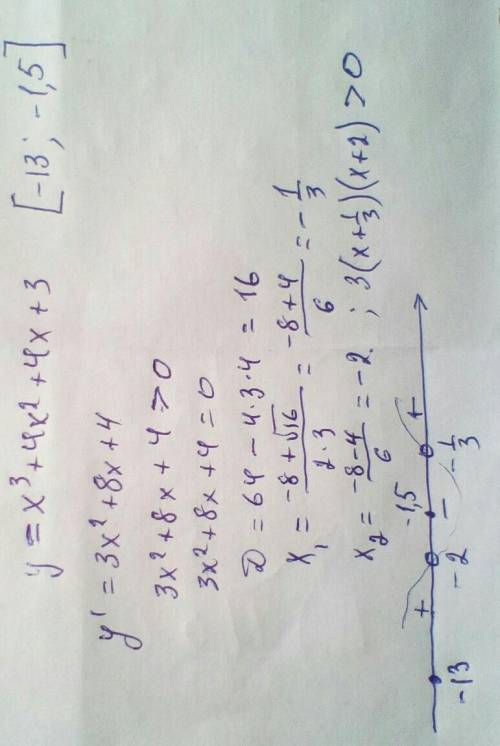 y = x³+4x²+4x+3 [-13; -1,5]
y' = 3x²+8x+4
3x²+8x+4>0
3x²+8x+4=0
D = 64-4·3·4 = 16
x₁ = (-8+√16)/(2·3) = (-8+4)/6 = -1/3
x₂ = (-8-4)/6 = -2 ; 3(x+1/3)(x+2)>0
+ -1,5 - +
-13 -2 -1/3